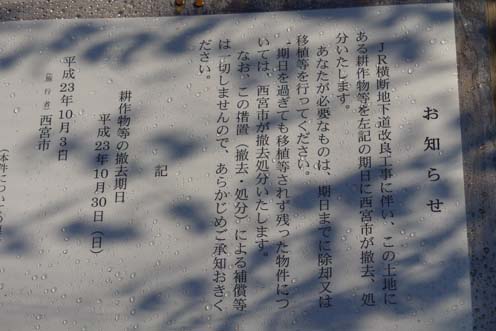 お知らせ
JR横断地下道改良工事に伴い、この土地に
ある耕作物等を左記の期日に西宮市が撤去、処
分いたします。
あなたが必要なものは、期日までに除却又は
移植等を行ってください。
期日を過ぎても移植等されず残った物件につ
いては、西宮市が撤去処分いたします。
なお、この措置（撤去・処分）による補償等
は一切しませんので、あらかじめご承知おきく
ださい。
記
耕作物等の撤去期日
平成23年10月30日（日）
平成23年10月3日
（施行者）西宮市
（本件につい